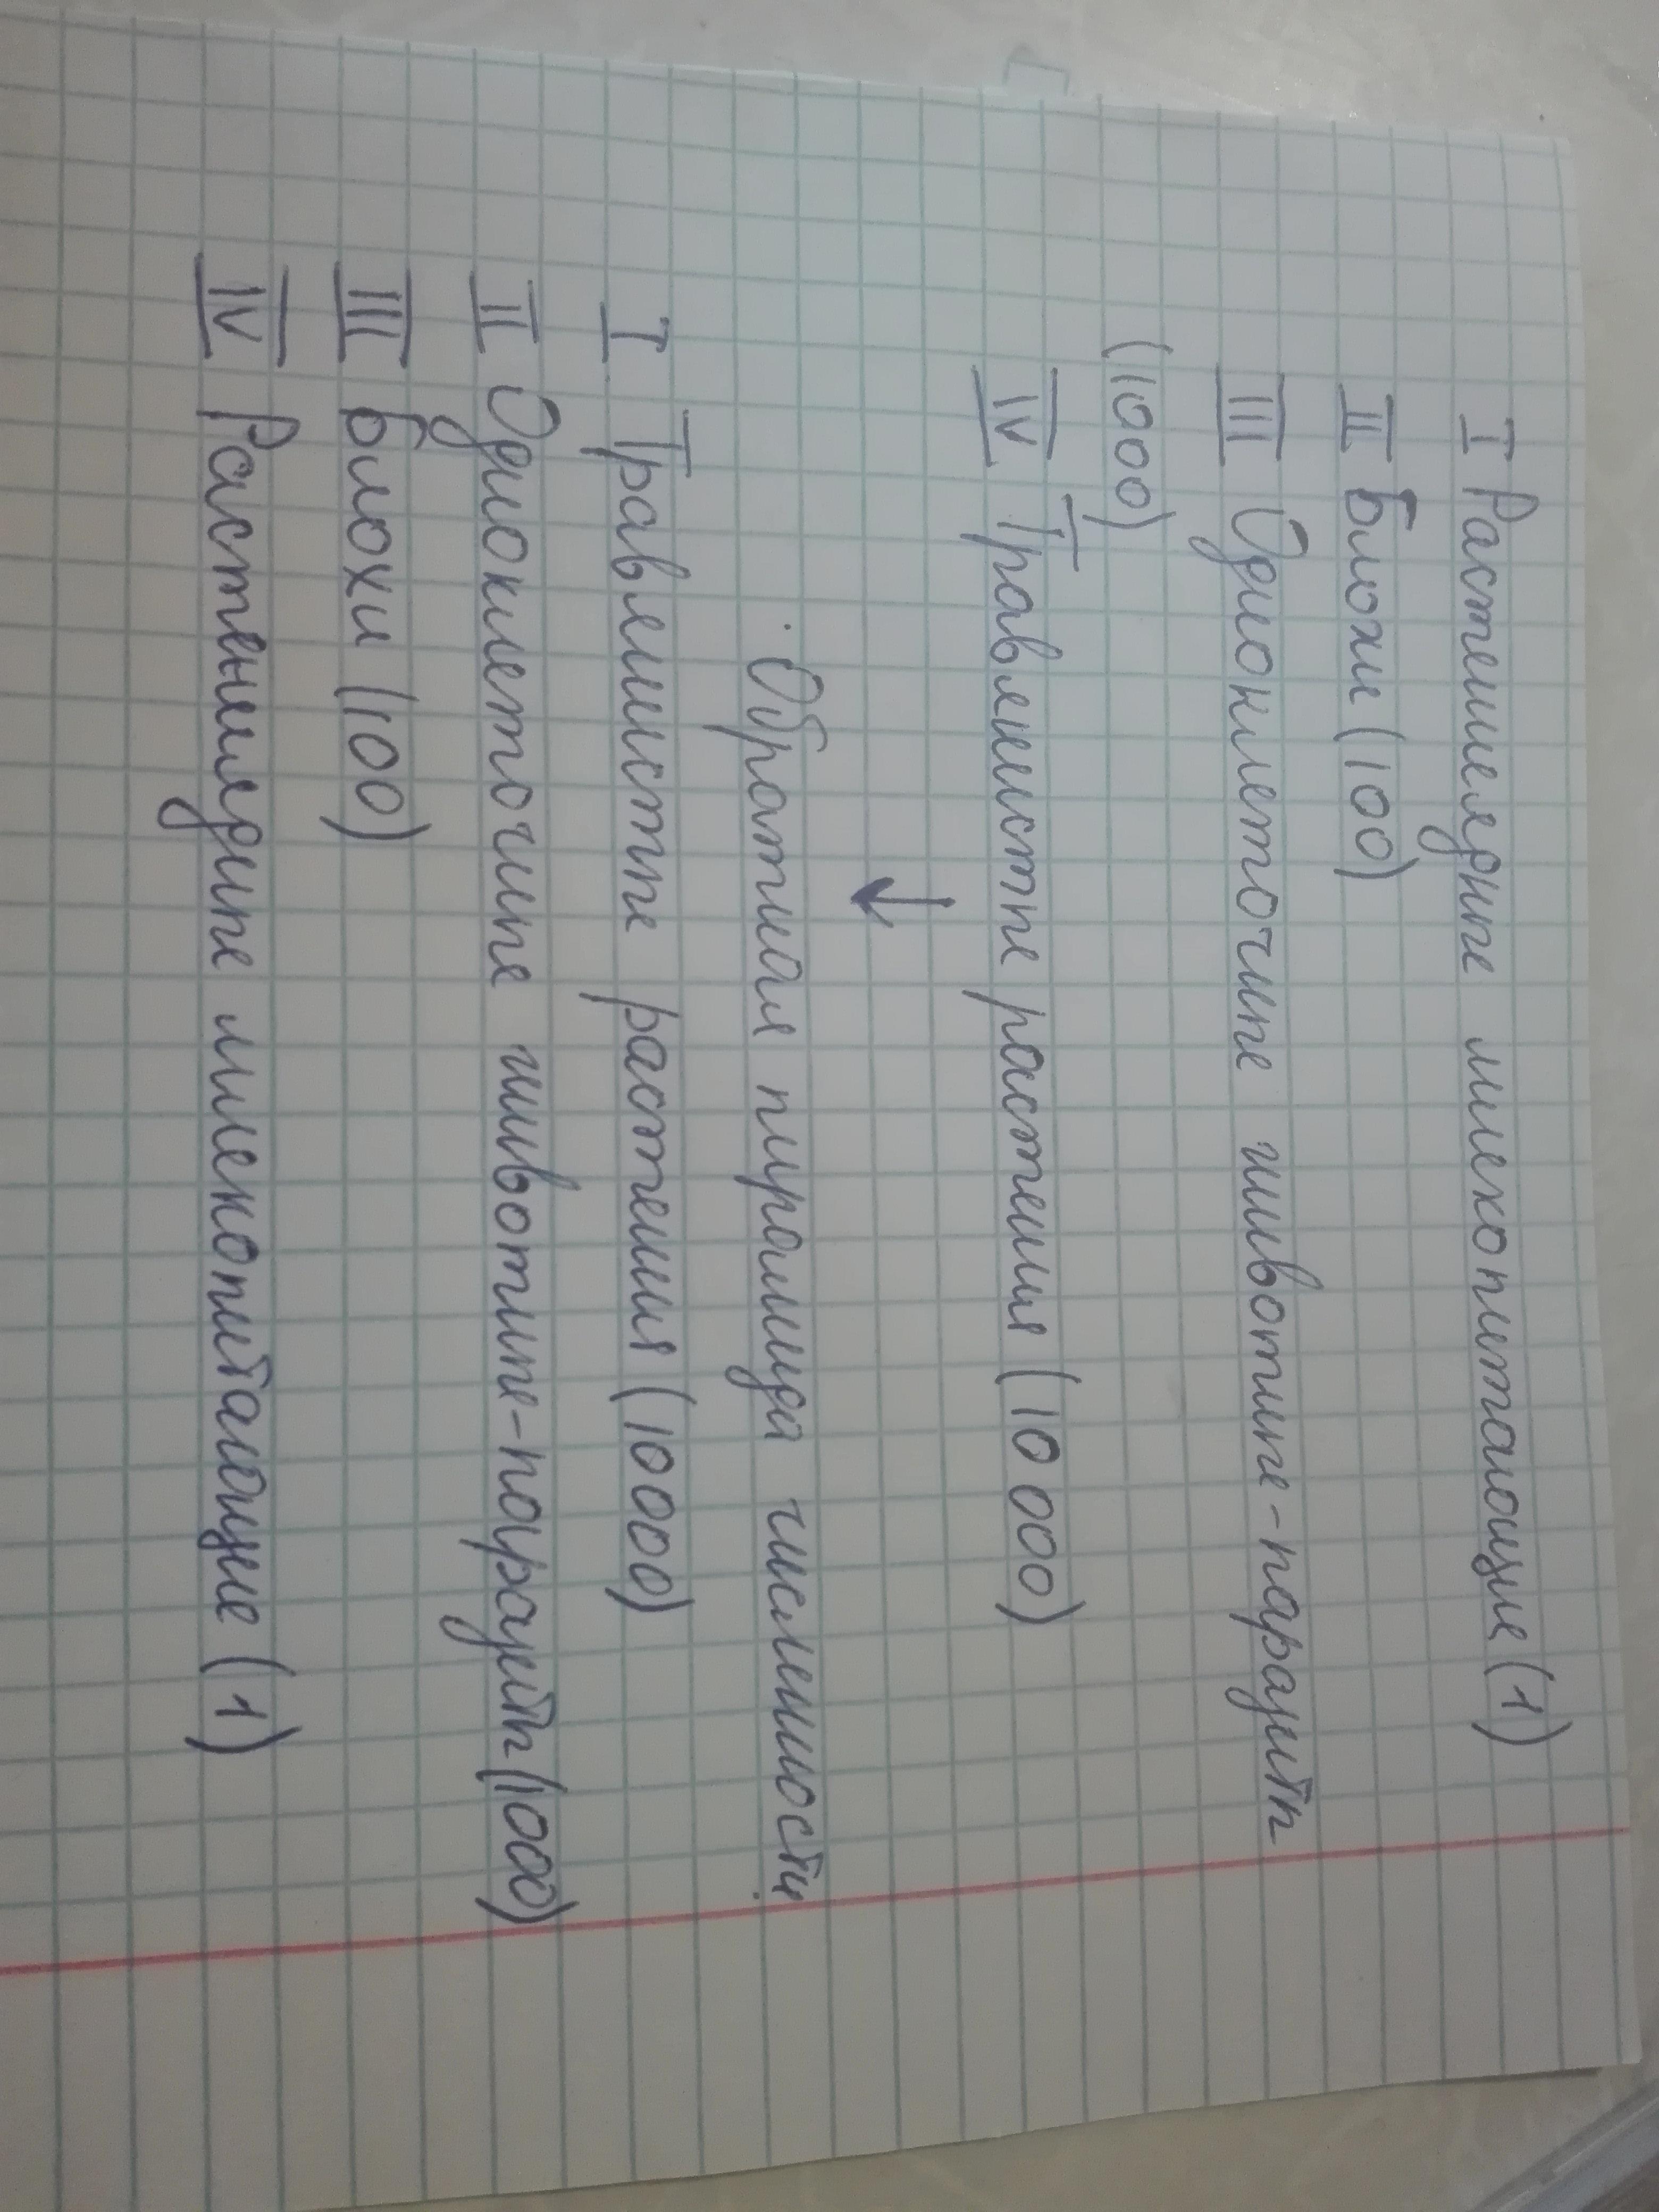 I Растениядные млекопитающие (1)
II Блохи (100)
III Одноклеточные животные-паразиты
(1000)
IV Травянистые растения (10 000)
↓
Обратная пирамида численности
I Травянистые растения (10000)
II Одноклеточные животные-паразиты (1000)
III Блохи (100)
IV Растениядные млекопитающие (1)